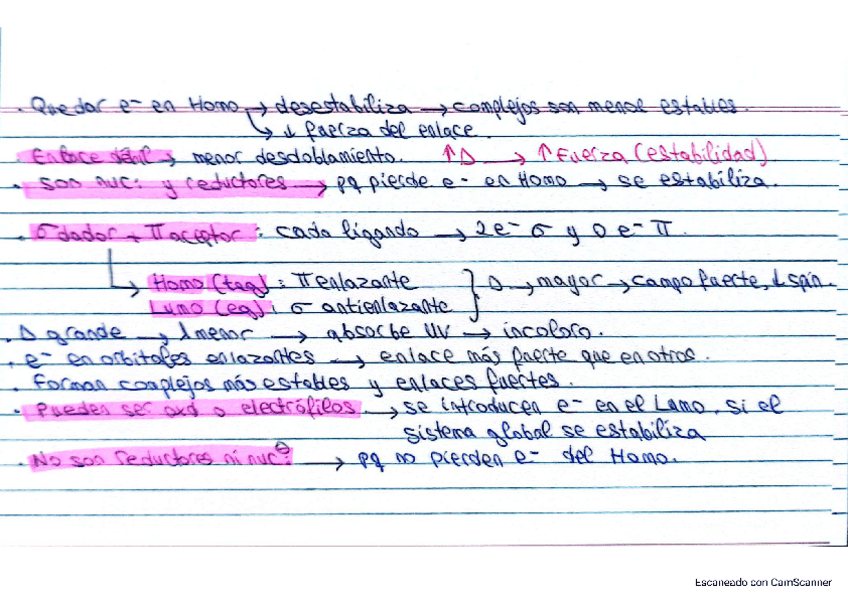 . Quedar e⁻ en Homo → desestabiliza → complejos son menos estables.
↳ ↓ fuerza del enlace.
Enlace débil → menor desdoblamiento. ↑Δ → ↑Fuerza (estabilidad)
. Son nuc: y reductores → pq pierde e⁻ en Homo → se estabiliza.
. σ dador + π aceptor: cada ligando → 2e⁻ σ y 0 e⁻ π.
↳ Homo (t2g): π enlazante } Δ → mayor → campo fuerte, ↓ spin.
Lumo (eg): σ antienlazante
. Δ grande → λ menor → absorbe UV → incoloro.
. e⁻ en orbitales enlazantes → enlace más fuerte que en otros.
. Forman complejos más estables y enlaces fuertes.
. Pueden ser oxd o electrófilos. → se introducen e⁻ en el Lumo, si el
sistema global se estabiliza
. No son reductores ni nuc⊖: → pq no pierden e⁻ del Homo.
Escaneado con CamScanner